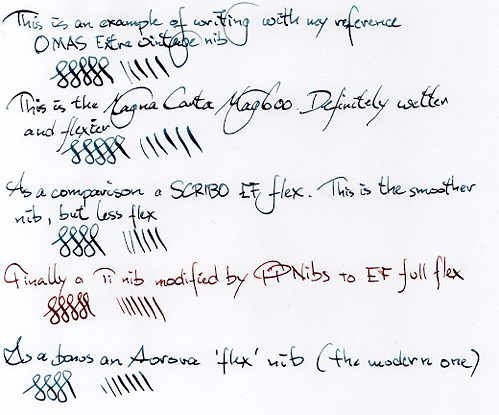 This is an example of writing with my reference
OMAS Extra vintage nib
This is the Magna Carta Mag600. Definitely wetter
and flexier
As a comparison a SCRIBO EF flex. This is the smoother
nib, but less flex
Finally a Ti nib modified by FPNibs to EF full flex
As a bonus an Aurora 'flex' nib (the modern one)